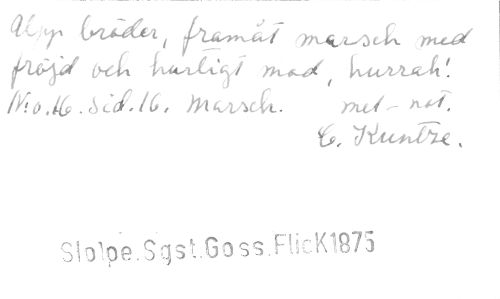 Upp bröder, framåt marsch med
fröjd och hurtigt mod, hurrah!
N:o.16. Sid.16. Marsch. mel-not.
C. Kuntze.
Stolpe.Sgst.Goss.FlicK1875